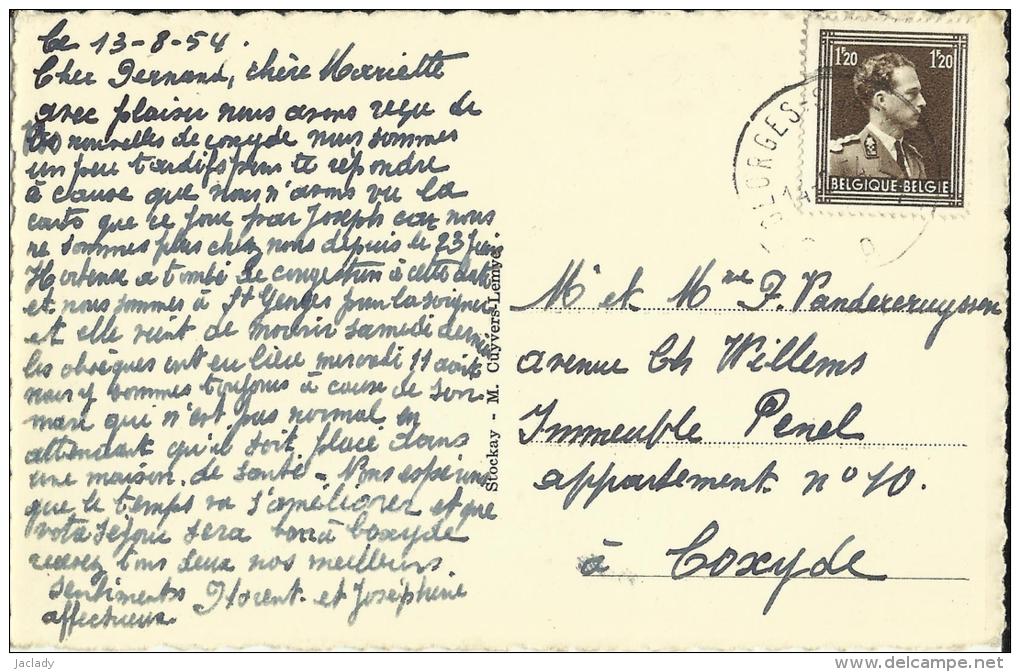 Le 13-8-54.
Cher Fernand, chère Mariette
avec plaisir nous avons reçu de
vos nouvelles de coxyde nous sommes
un peu tardifs pour te répondre
à cause que nous n'avons vu la
carte que ce jour par Joseph car nous
ne sommes plus chez nous depuis le 23 juin
Hortense a tombé de congestion à cette date
et nous sommes à St Georges pour la soigner
et elle vient de mourir samedi dernier
les obsèques ont eu lieu mercredi 11 août
nous y sommes toujours à cause de son
mari qui n'est pas normal en
attendant qu'il soit placé dans
une maison de santé - Nous espérons
que le temps va s'améliorer et que
votre séjour sera bon à Coxyde
recevez tous deux nos meilleurs
sentiments Florent et Joséphine
affectueux.
Stockay - M. Cuyvers-Lemye
1F20 1F20
BELGIQUE-BELGIE
GEORGES-S
14
Mr et Mme F. Vandercruyssen
avenue Ch Willems
Immeuble Penel
appartement n° 10.
à Coxyde
jaclady
www.delcampe.net